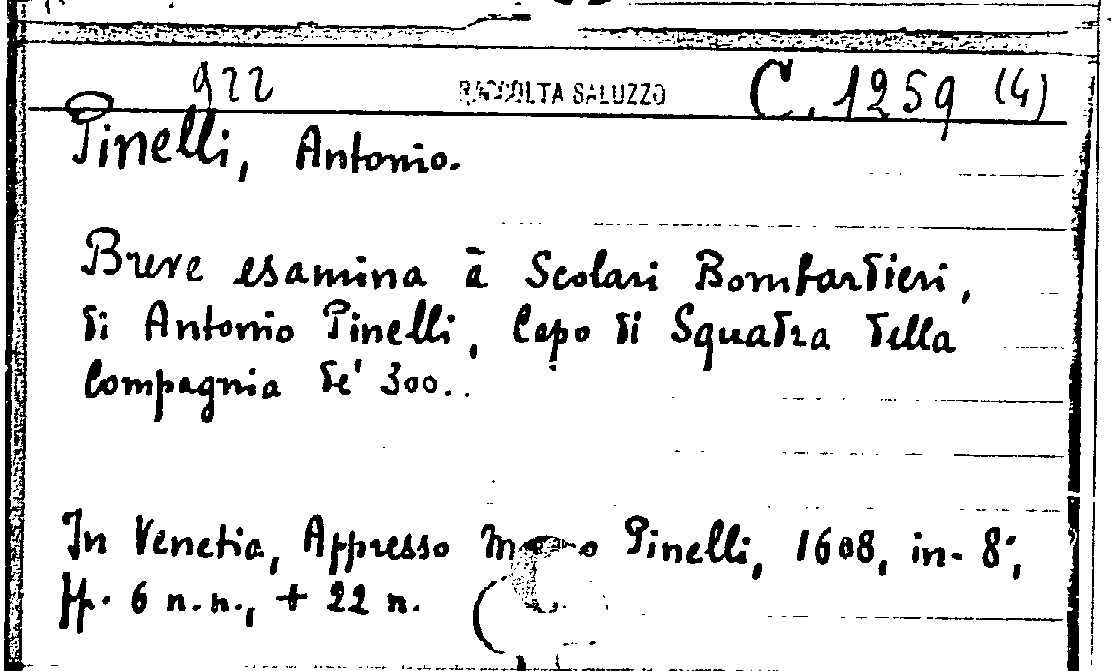 922 RACCOLTA SALUZZO C. 1259 (4)
Pinelli, Antonio.
Breve esamina à Scolari Bombardieri,
di Antonio Pinelli, Capo di Squadra della
Compagnia de' 300..
In Venetia, Appresso Pinelli, 1608, in-8°,
pp. 6 n.n., + 22 n.